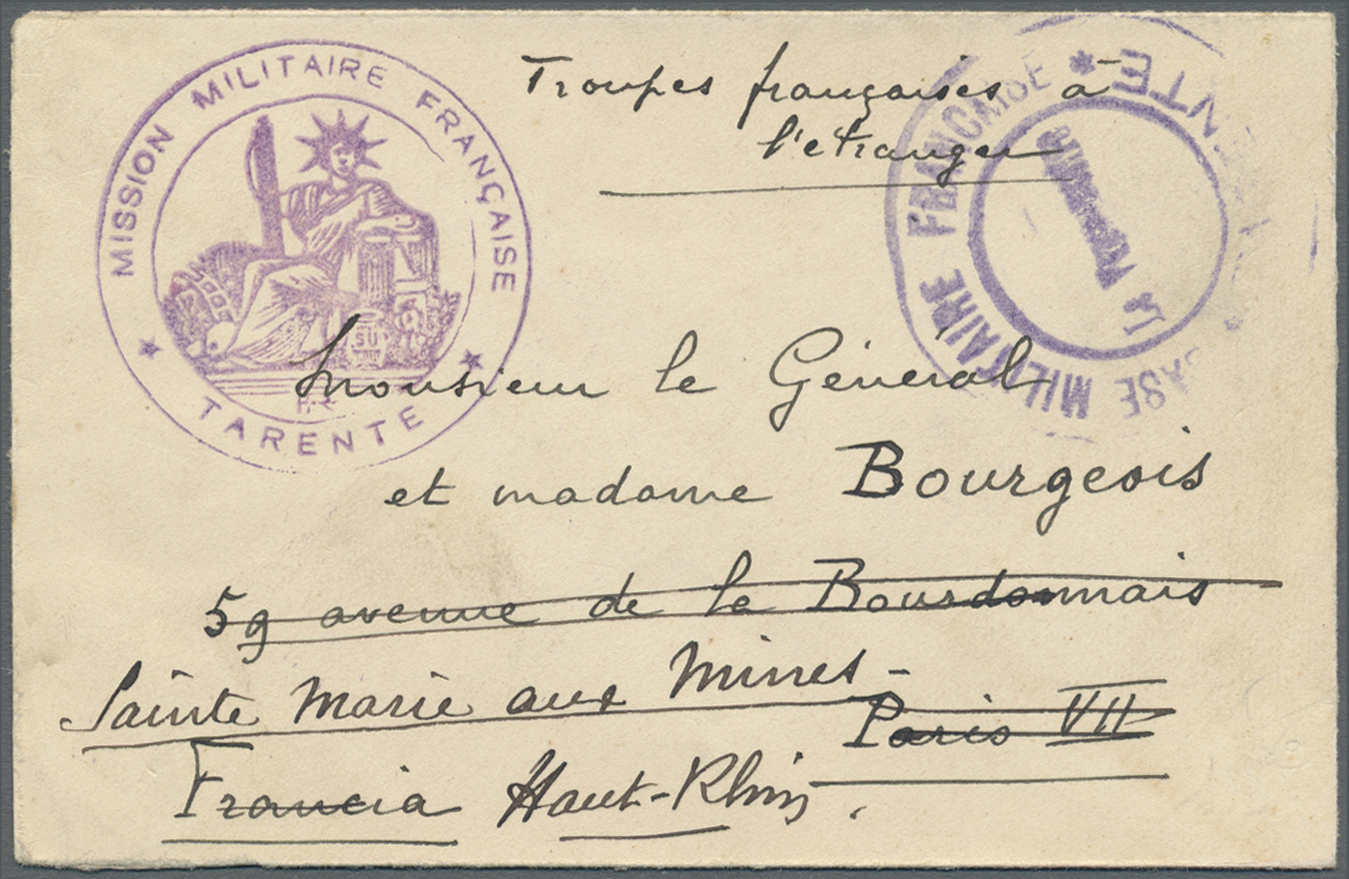 MISSION MILITAIRE FRANÇAISE
TARENTE
Troupes françaises à
l'étranger
BASE MILITAIRE FRANCAISE
Monsieur le Général
et madame Bourgeois
59 avenue de la Bourdonnais
Sainte Marie aux Mines -
Paris VII
Francia Haut-Rhin.